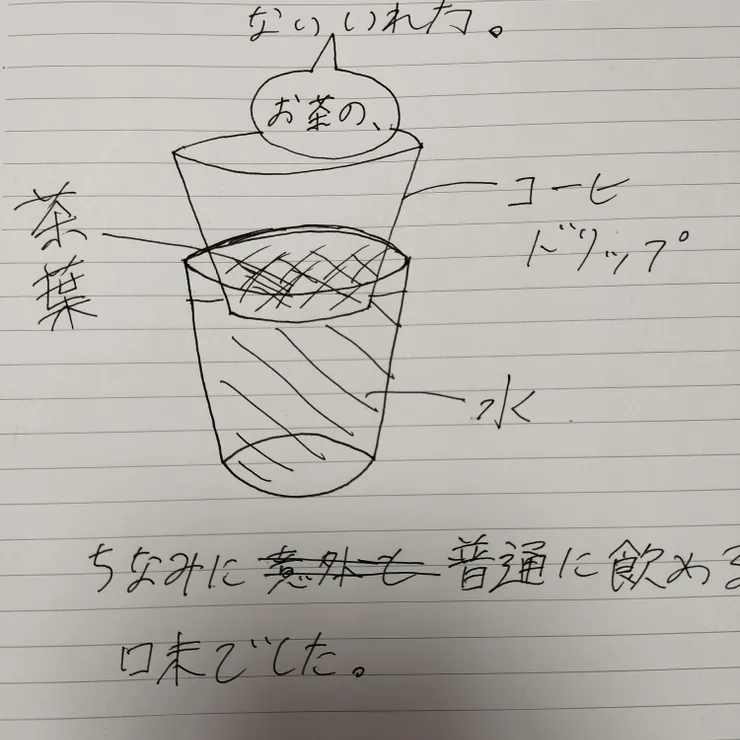 ないいれた。
お茶の、
コーヒ
ドリップ
茶葉
水
ちなみに意外も普通に飲める
口未でした。